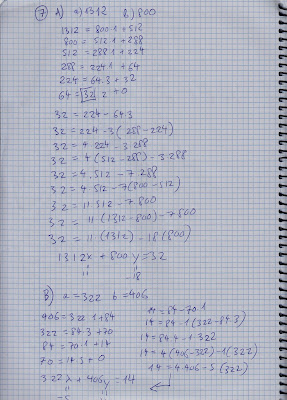 7 A) a) 1312 b) 800
1312 = 800·1 + 512
800 = 512·1 + 288
512 = 288·1 + 224
288 = 224·1 + 64
224 = 64·3 + 32
64 = 32 2 + 0
32 = 224 - 64·3
32 = 224 - 3(288 - 224)
32 = 4 224 - 3 288
32 = 4(512 - 288) - 3 288
32 = 4·512 - 7 288
32 = 4·512 - 7(800 - 512)
32 = 11 512 - 7·800
32 = 11(1312 - 800) - 7·800
32 = 11(1312) - 18(800)
1312x + 800y = 32
11 -18
B) a = 322 b = 406
406 = 322·1 + 84
322 = 84·3 + 70
84 = 70·1 + 14
70 = 14·5 + 0
322x + 406y = 14
14 = 84 - 70·1
14 = 84 - 1(322 - 84·3)
14 = 84·4 - 1·322
14 = 4(406 - 322) - 1(322)
14 = 4·406 - 5(322)